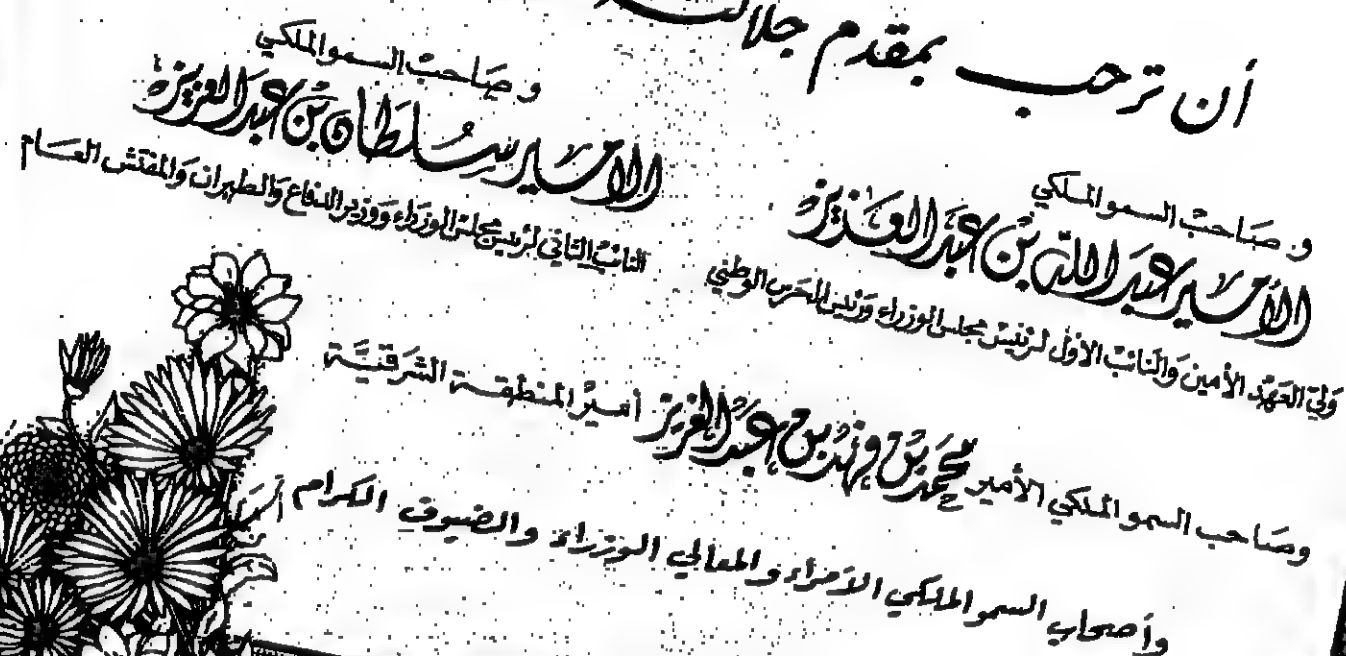 أن ترحب بمقدم
و صاحب السمو الملكي
الأمير عبد الله بن عبد العزيز
ولي العهد الأمين والنائب الأول لرئيس مجلس الوزراء ورئيس الحرس الوطني
و صاحب السمو الملكي
الأمير سلطان بن عبد العزيز
النائب الثاني لرئيس مجلس الوزراء ووزير الدفاع والطيران والمفتش العام
وصاحب السمو الملكي الأمير محمد بن فهد بن عبد العزيز أمير المنطقة الشرقية
وأصحاب السمو الملكي الأمراء والمعالي الوزراء والضيوف الكرام